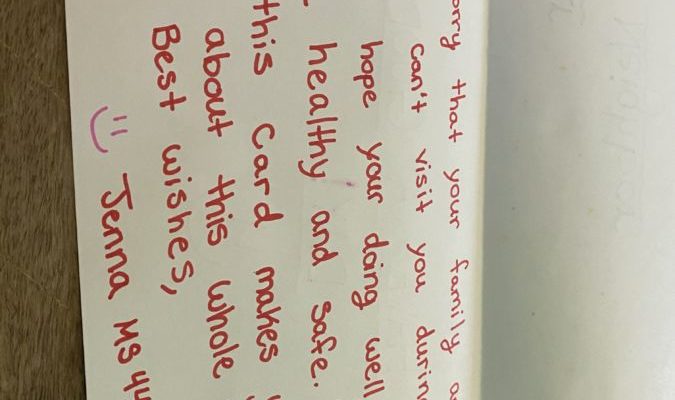 orry that your family a
can't visit you durin
hope your doing well
healthy and safe.
this card makes y
about this whole
Best wishes,
Jenna MS 44